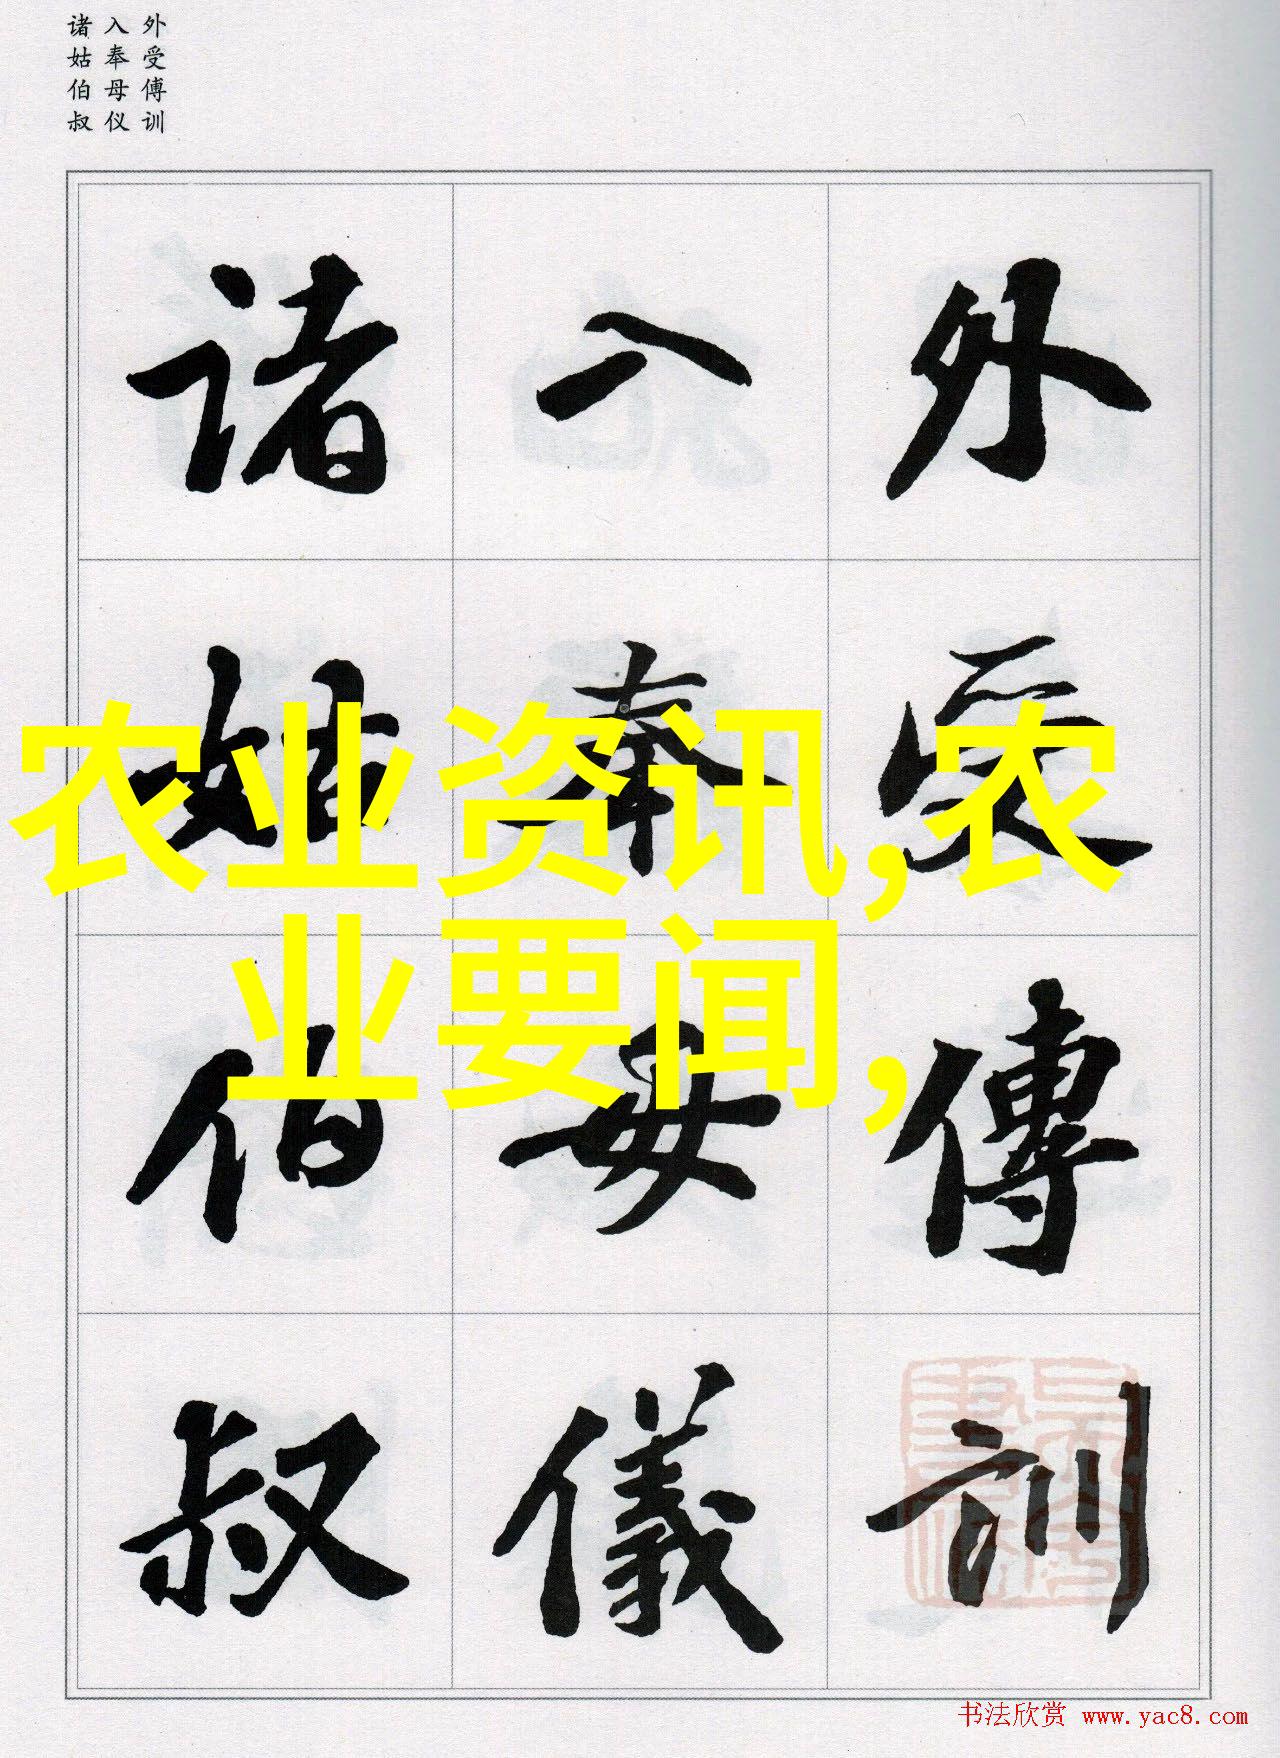 外受傅训
入奉母仪
诸姑伯叔
外受傅訓
入奉母儀
诸姑伯叔
农业资讯,农
业要闻,
书法欣赏 www.yac8.com